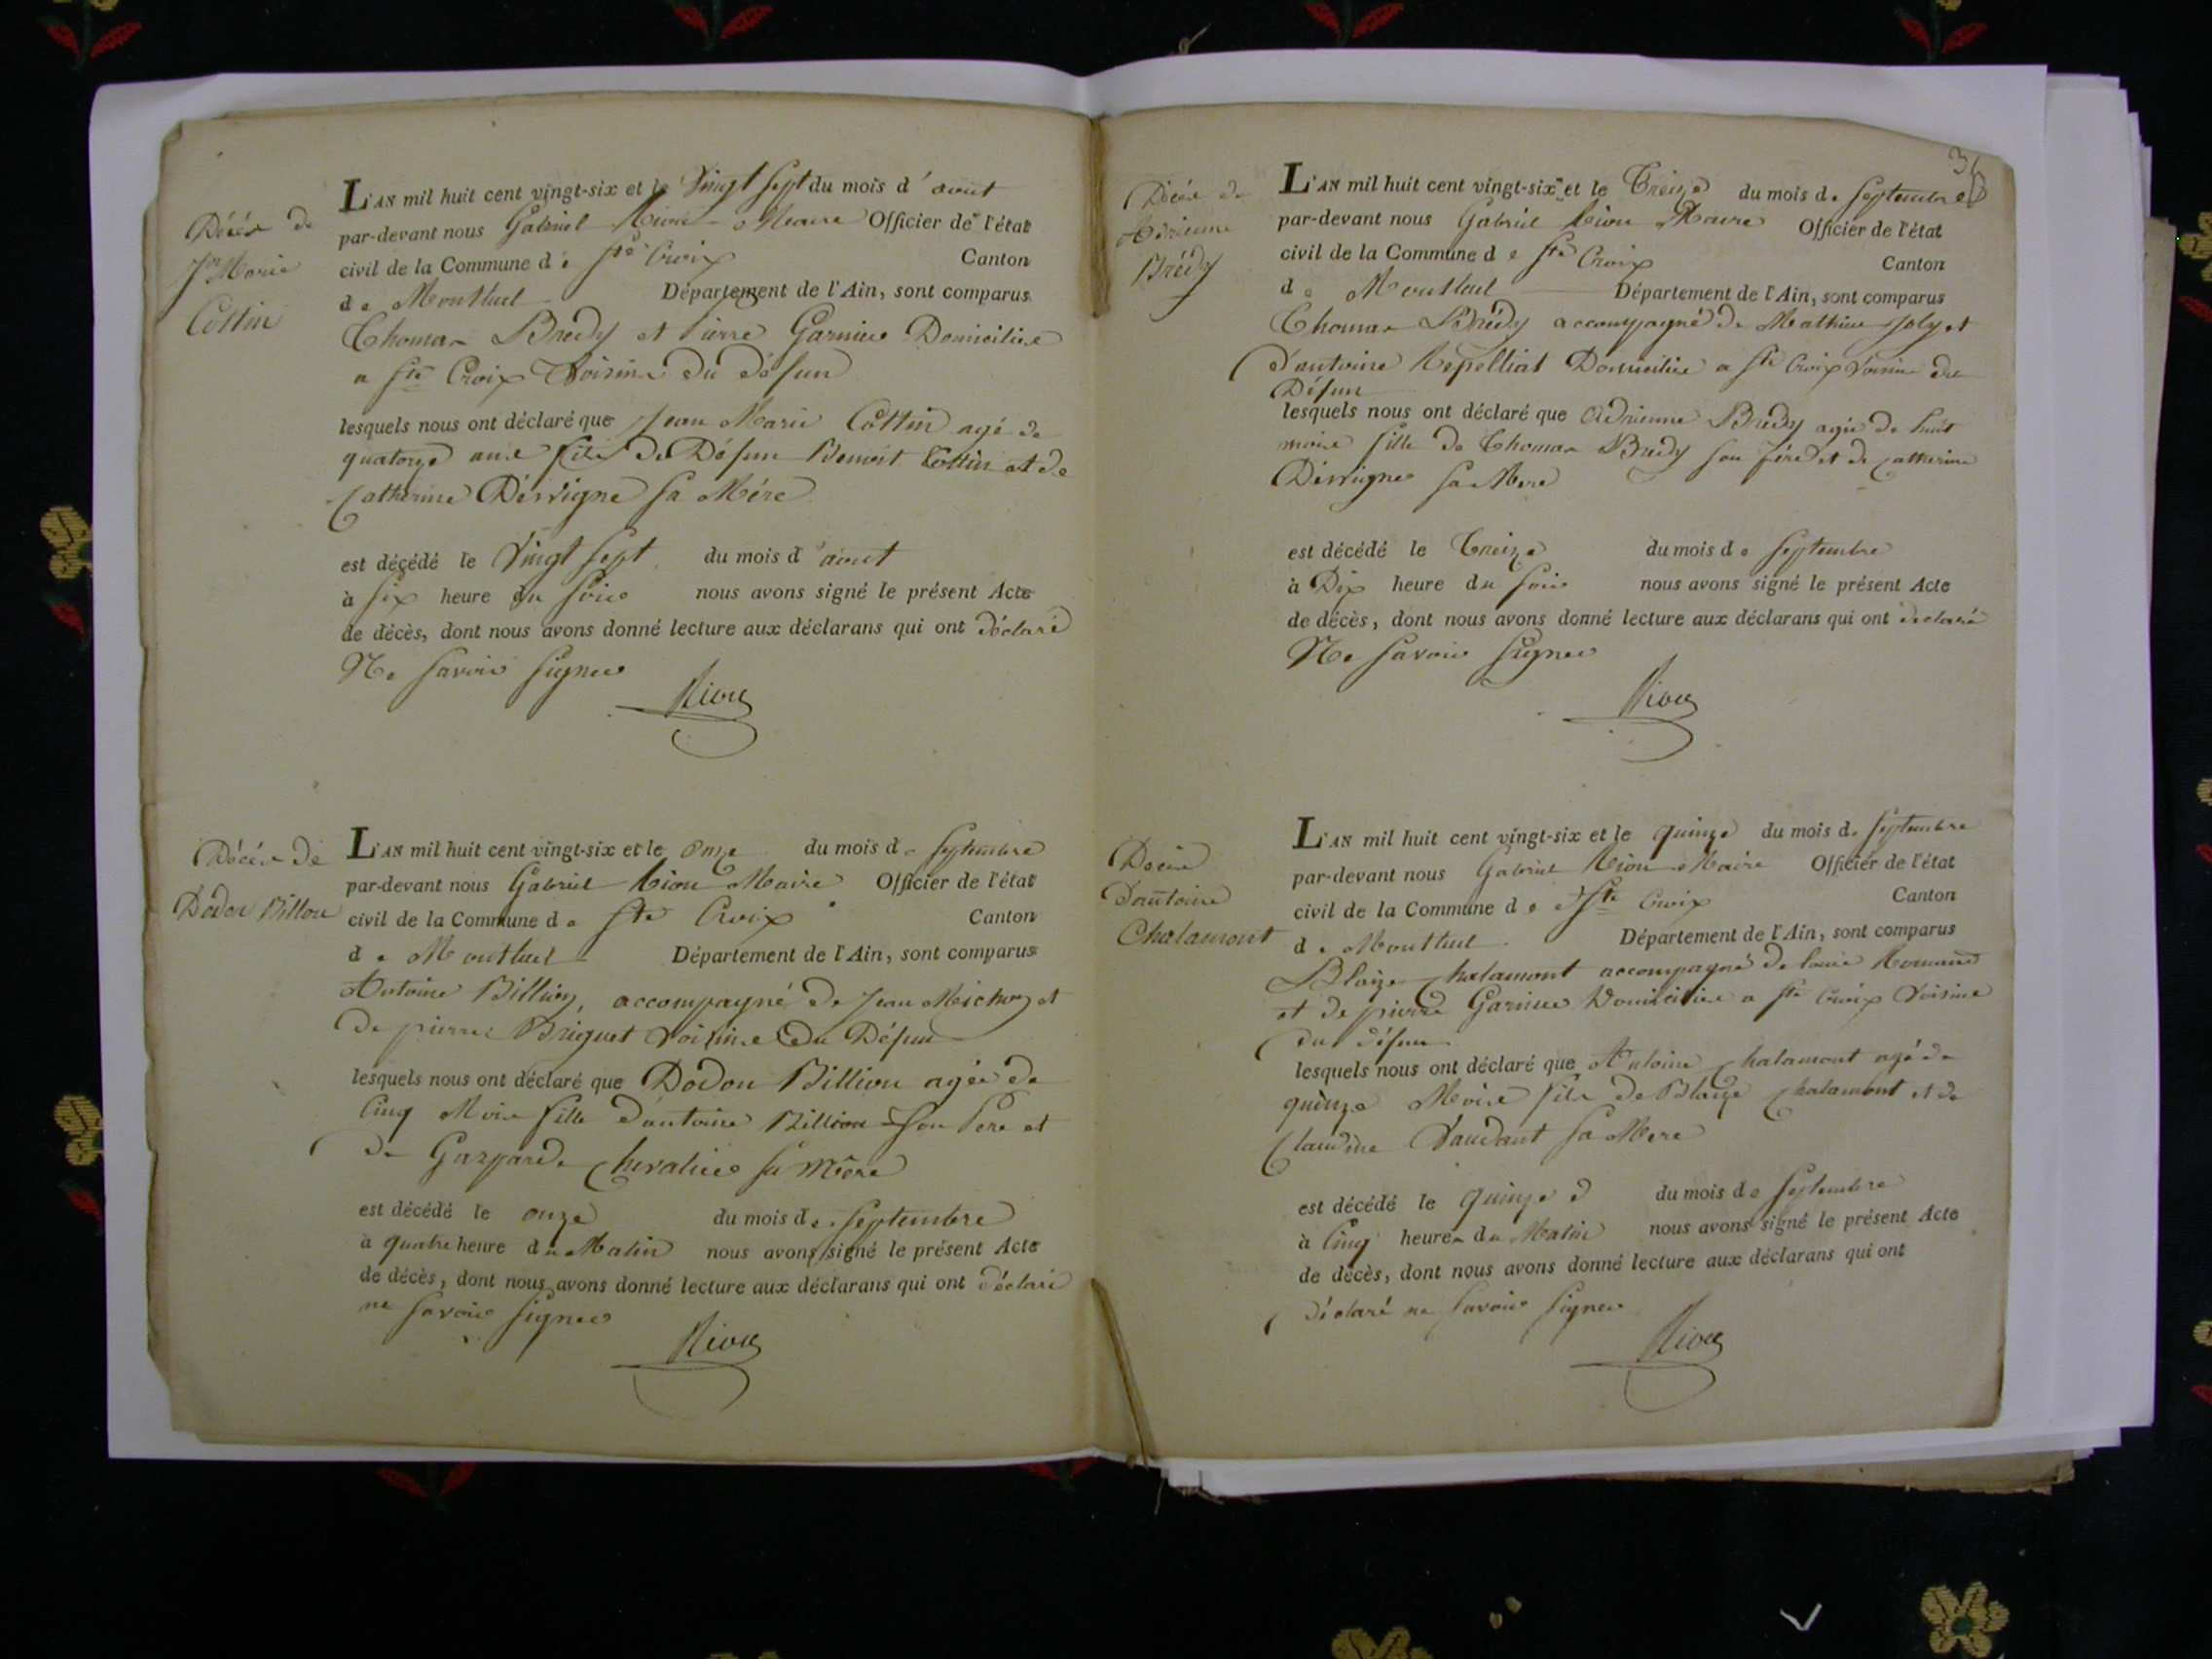 Décès de
Jn Marie
Cottin
L'AN mil huit cent vingt-six et le Vingt Sept du mois d'aout
par-devant nous Gabriel Maire Officier de l'état
civil de la Commune de Ste Croix Canton
de Montluel Département de l'Ain, sont comparus
Thomas Bredy et Pierre Garnier Domicilié
a Ste Croix Voisins du défun
lesquels nous ont déclaré que Jean Marie Cottin agé de
quatorze ans fils de Défun Benoit Cottin et de
Catherine Dervigne Sa Mére
est décédé le Vingt Sept du mois d'aout
à Six heure du Soir nous avons signé le présent Acte
de décès, dont nous avons donné lecture aux déclarans qui ont déclaré
Ne Savoir Signer
Décès de
Dodon Billon
L'AN mil huit cent vingt-six et le onze du mois de Septembre
par-devant nous Gabriel Maire Officier de l'état
civil de la Commune de Ste Croix Canton
de Montluel Département de l'Ain, sont comparus
Antoine Billion, accompagné de Jean Michon et
de pierre Briguet Voisins du Défun
lesquels nous ont déclaré que Dodon Billion agée de
Cinq Mois fille d'antoine Billion Son Pere et
de Gasparde Chevalier Sa Mère
est décédé le onze du mois de Septembre
à quatre heure du Matin nous avons signé le présent Acte
de décès, dont nous avons donné lecture aux déclarans qui ont déclaré
ne Savoir Signer
36
Décès de
Adrienne
Brédy
L'AN mil huit cent vingt-six et le Treize du mois de Septembre
par-devant nous Gabriel Maire Officier de l'état
civil de la Commune de Ste Croix Canton
de Montluel Département de l'Ain, sont comparus
Thomas Brédy accompagné de Mathieu Joly et
d'antoine Domicilié a Ste Croix Voisins du
Défun
lesquels nous ont déclaré que Adrienne Bredy agée de huit
mois fille de Thomas Bredy Son Pére et de Catherine
Dervigne Sa Mere
est décédé le Treize du mois de Septembre
à Dix heure du Soir nous avons signé le présent Acte
de décès, dont nous avons donné lecture aux déclarans qui ont déclaré
Ne Savoir Signer
Décès
Dantoine
Chalamont
L'AN mil huit cent vingt-six et le quinze du mois de Septembre
par-devant nous Gabriel Maire Officier de l'état
civil de la Commune de Ste Croix Canton
de Montluel Département de l'Ain, sont comparus
Blaize Chalamont accompagné de Louis
et de pierre Garnier Domicilié a Ste Croix Voisins
du défun
lesquels nous ont déclaré que Antoine Chalamont agé de
quinze Mois fils de Blaize Chalamont et de
Claudine Vaudant Sa Mere
est décédé le quinze du mois de Septembre
à Cinq heures du Matin nous avons signé le présent Acte
de décès, dont nous avons donné lecture aux déclarans qui ont
déclaré ne Savoir Signer